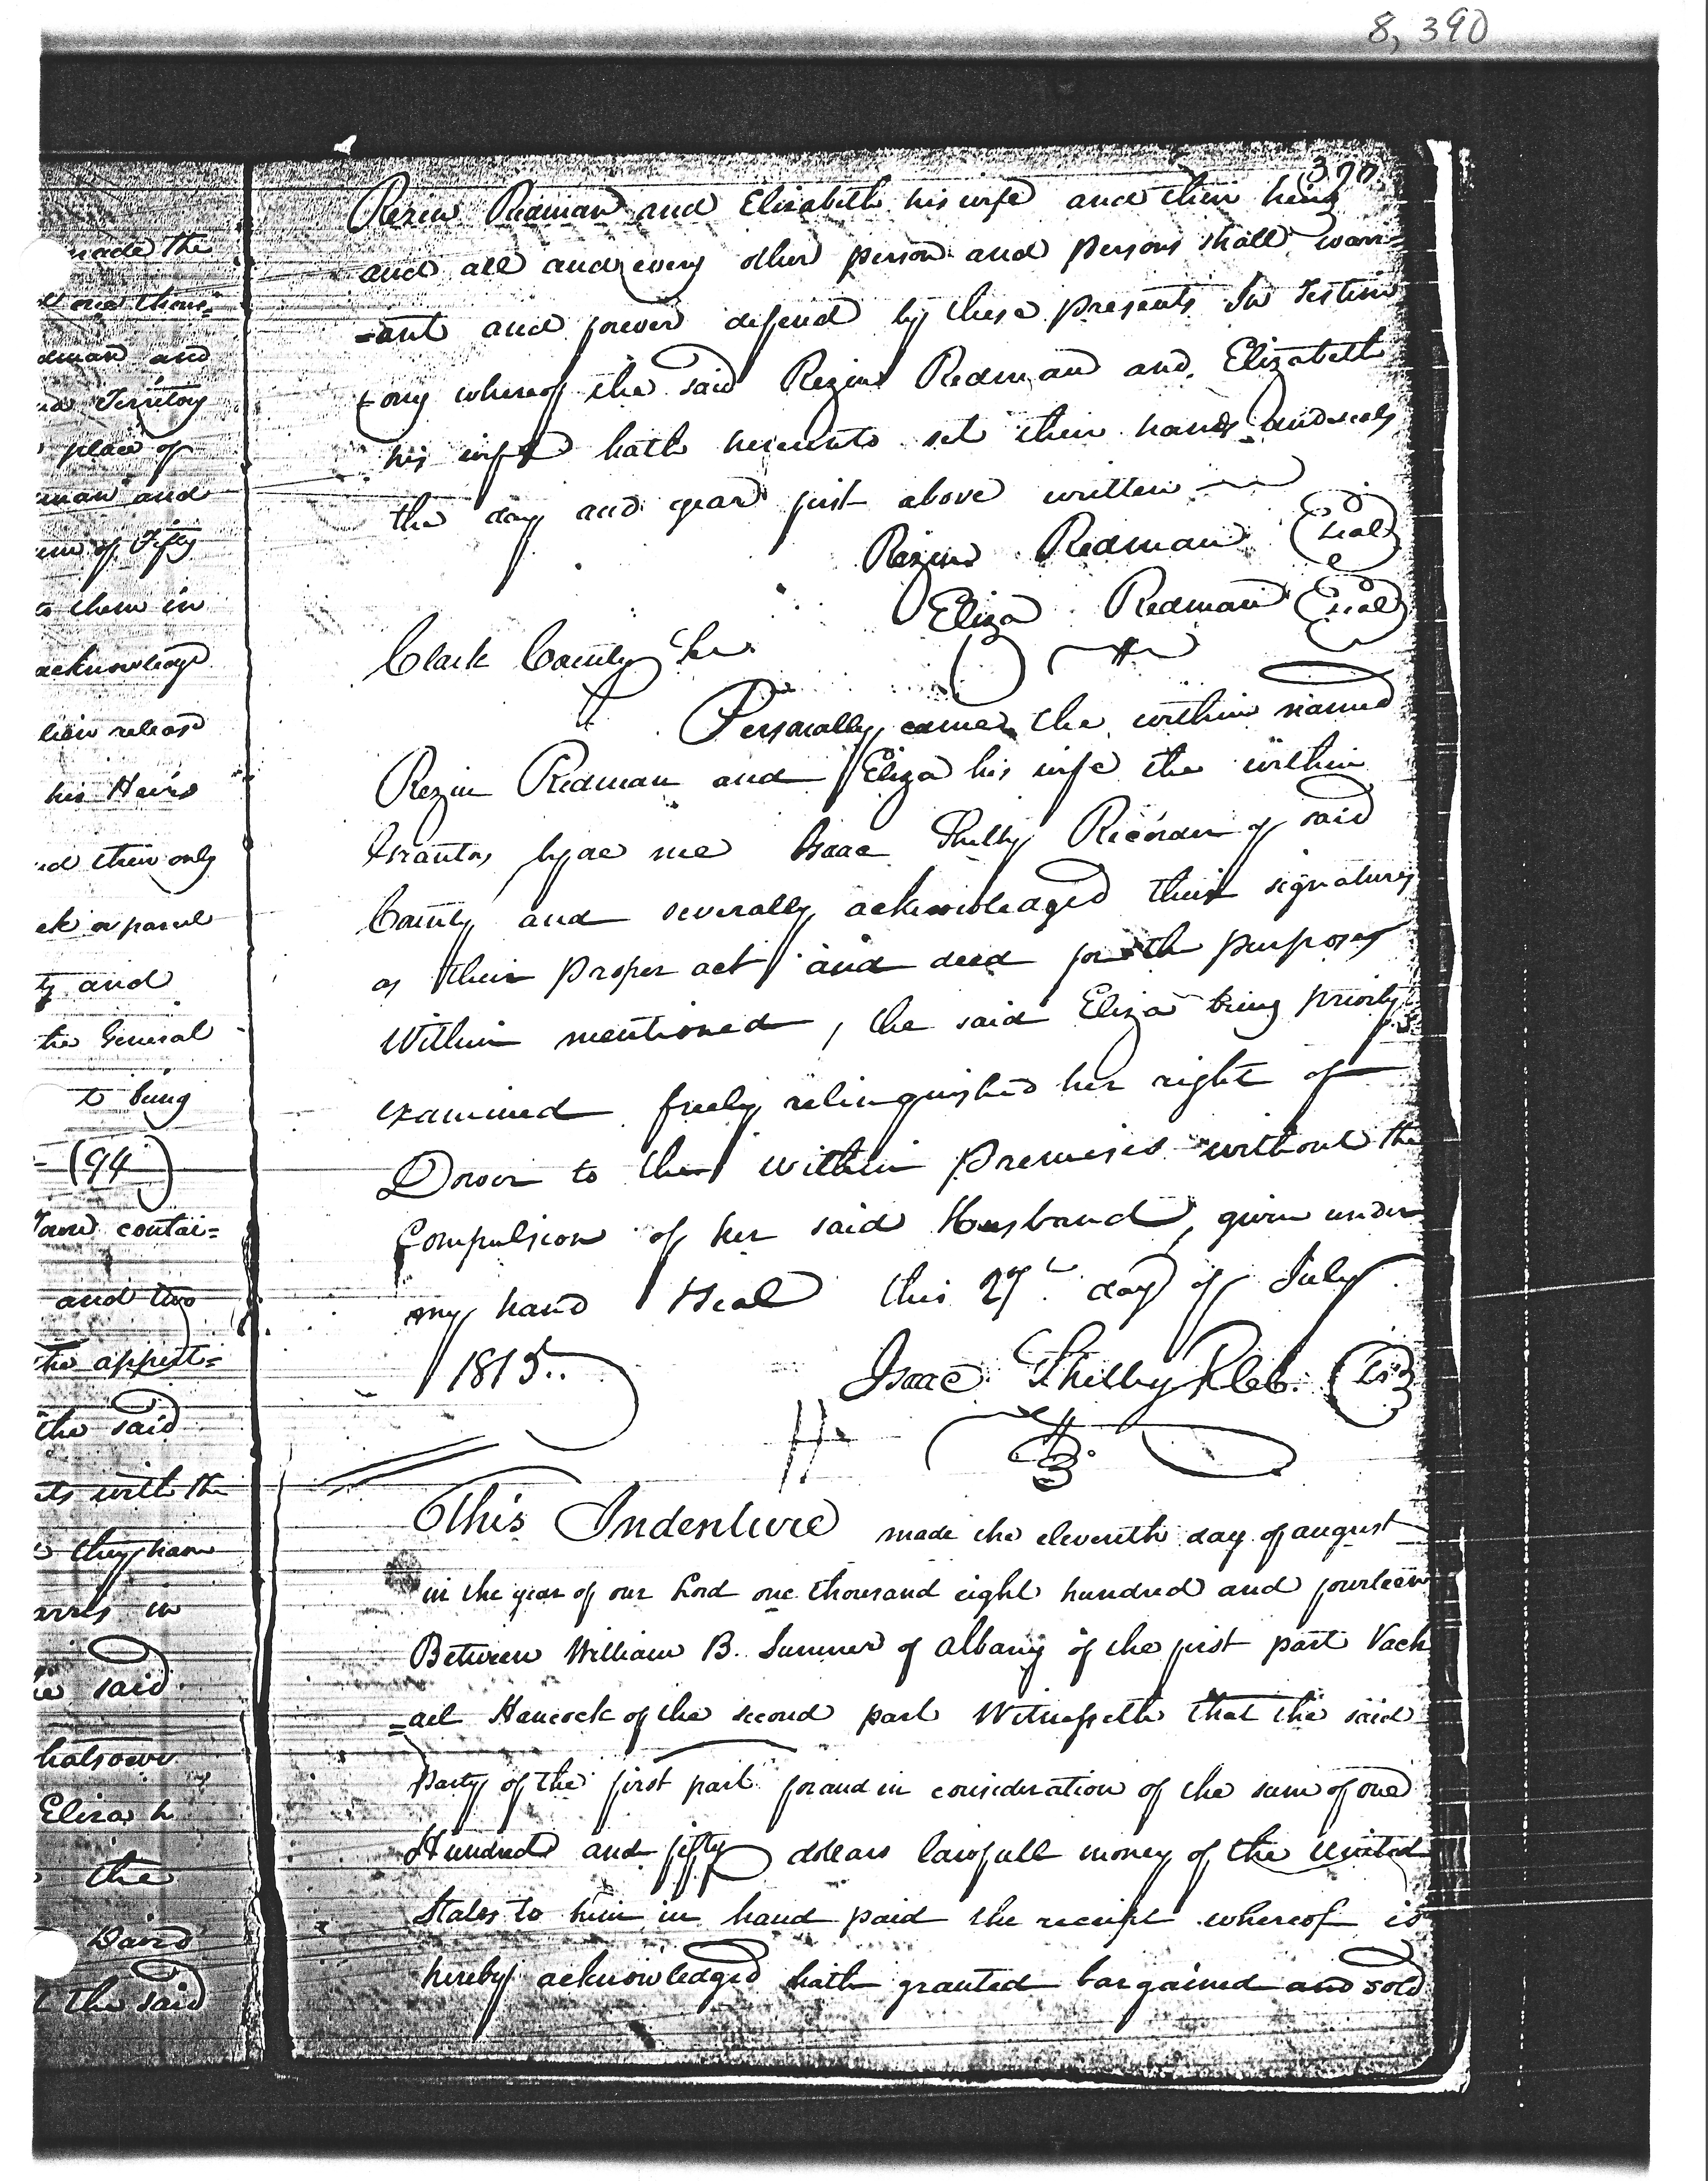 8, 390
390
Rezin Redman and Elizabeth his wife and their heirs
and all and every other person and persons shall warr=
=ant and forever defend by these presents In Testim
=ony whereof the said Rezin Redman and Elizabeth
his wife hath hereunto set their hands and seals
the day and year first above written
Rezin Redman Seal
Eliza Redman Seal
Clark County Sc
Personally came the within named
Rezin Redman and Eliza his wife the within
Grantors before me Isaac Shelby Recorder of said
County and severally acknowledged their signatures
as their proper act and deed for th purposes
Within mentioned, the said Eliza being privily
examined freely relinquished her right of
Dower to the within premises without the
Compulsion of her said Husband, given under
my hand & Seal this 27th day of July
1815.
Isaac Shelby R.C.C. (LS)
This Indenture made the eleventh day of august
in the year of our Lord one thousand eight hundred and fourteen
Between William B. Sumner of Albany of the first part Vach
=ael Hancock of the second part Witnesseth that the said
Party of the first part for and in consideration of the sum of one
Hundred and fifty dollars lawfull money of the United
States to him in hand paid the receipt whereof is
hereby acknowledged hath granted bargained and sold
made the
one thous=
dman and
Territory
place of
man and
of Fifty
to them in
acknowledge
release
his Heirs
d their only
or parcel
ty and
the General
to being
(94)
contai=
and two
the appurt=
the said
ts with the
they have
in
said
hatsoever
Eliza h
the
David
the said